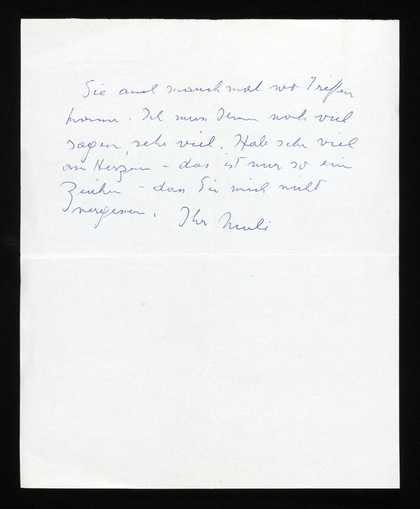 Sie auch manchmal wo Treffen
könne. Ich muss Ihnen noch viel
sagen, sehr viel. Hab sehr viel
am Herzen – das ist nur so ein
Zeichen – dass Sie mich nicht
vergessen. Ihr